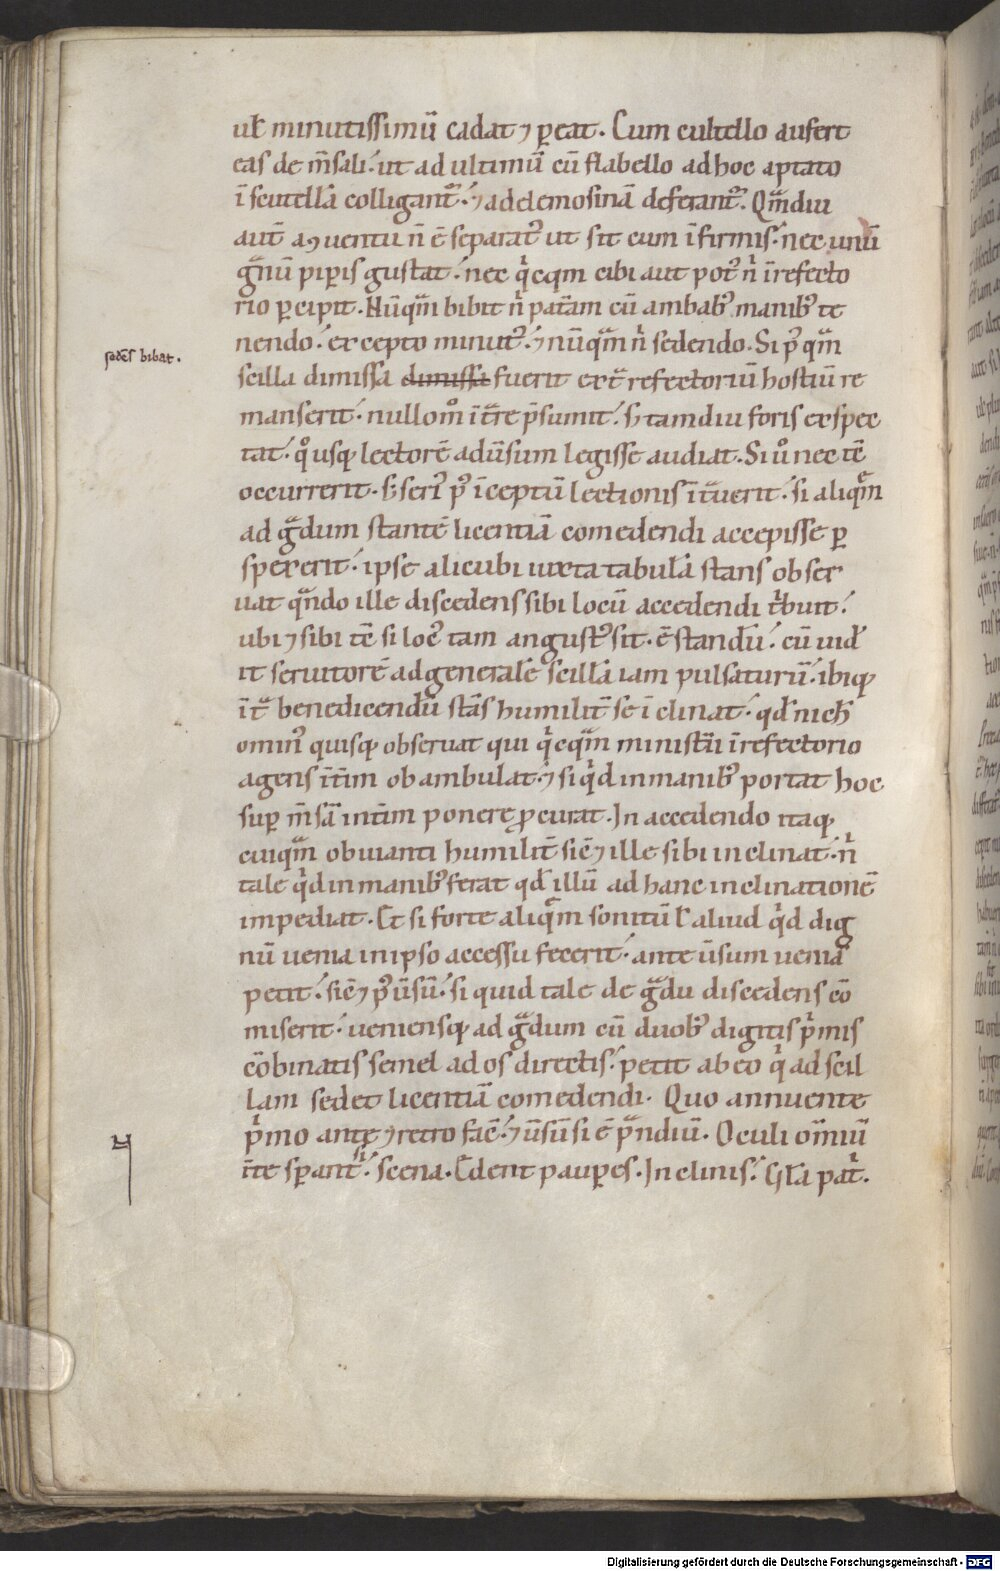 uł minutissimū cadat ⁊ ꝑeat. Cum cultello aufert
eas de m̄sali. ut ad ultimū cū flabello ad hoc aptato
ī scutellā colligant᷑. ⁊ ad elemosinā deferant᷑. Qͣmdiu
aut̄ a ꝯuentu n̄ ē separat᷑ ut sit cum īfirmis. nec unū
gͣnū piꝑis gustat. nec qͥcqm cibi aut pot᷑ nͥ ī refecto
rio ꝑcipit. Nūqͣm bibit nͥ pat̄am cū ambab᷒ manib᷒ te
nendo. excepto minut᷒. ⁊ nūqͣm nͥ sedendo. Si p᷒qͣm
sedēs bibat.
scilla dimissa dimissa fuerit extͣ refectoriū hostiū re
manserit. nullom̊ īt̄re p̄sumit. s; tamdiu foris exspec
tat. qͦusqꝫ lectorē ad ūsum legisse audiat. Si ůo nec tē
occurrerit. s; seri᷒ p᷒ īceptū lectionis īt̄uerit. si aliqͣm
ad gͣdum stantē licentiā comedendi accepisse ꝑ
spexerit. ipse alicubi iuxta tabulā stans obser
uat qͣndo ille discedens sibi locū accedendi tͥbuit.
ubi ⁊ sibi tē si loc᷒ tam angust᷒ sit. ē standū. cū uid̄
it seruitorē ad generalē scillā iam pulsaturū. ibiqꝫ
īt̄ benedicendū stās humilit̄ se īclinat. qd̄ nich̄
omin᷒ quisqꝫ obseruat qui qͥcqͣm ministīi ī refectorio
agens īt̄im obambulat. ⁊ si qͥd in manib᷒ portat hoc
suꝑ m̄sā int̄im ponere ꝓcurat. In accedendo itaqꝫ
cuiqͣm obuianti humilit̄ sic̄ ⁊ ille sibi inclinat. nͥ
tale qͥd in manib᷒ ferat qd̄ illū ad hanc inclinationē
impediat. Et si forte aliqͣm sonitū ł aliud qͥd dig
nū uenia in ipso accessu fecerit. ante ūsum ueniā
petit. sic̄ ⁊ p᷒ ūsū. si quid tale de gͣdu discedens cō
miserit. ueniensqꝫ ad gͣdum cū duob᷒ digitis pͥmis
cōbinatis semel ad os directis. petit ab eo qͥ ad scil
lam sedet licentiā comedendi. Quo annuente
pͥmo ante ⁊ retro fac̄. ⁊ ūsū si ē pͣndiū. Oculi om̄iū
īte sꝑant᷑. si scena. Edent pauꝑes. In clinis. Gła patͥ.